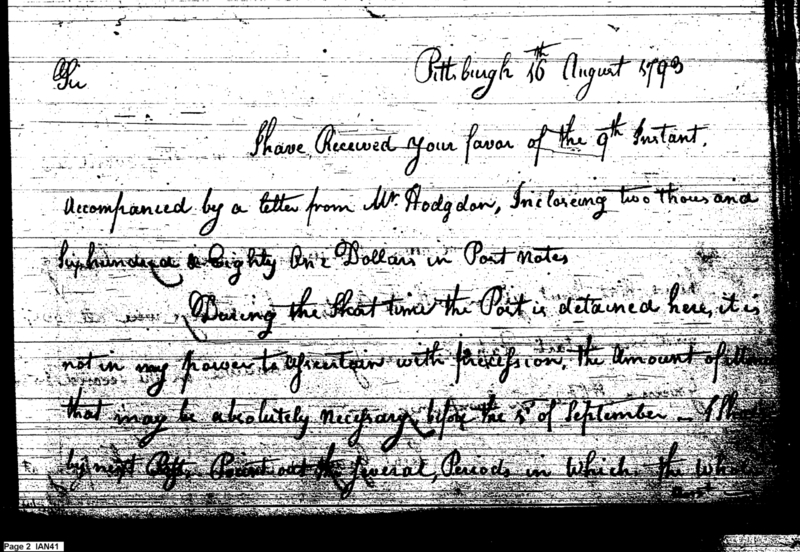 Pittsburgh 16th August 1793
Sir
I have Received your favor of the 9th Instant,
accompanied by a letter from Mr. Hodgdon, Incloseing two thousand
Six hundred & Eighty One Dollars in Post notes
During the Short time the Post is detained here, it is
not in my power to assertain with precission, the amount of
that may be absolutely necessary before the 5th of September — I Shall
by next Post, Point out the Several, Periods in which the whole
Page 2 IAN41